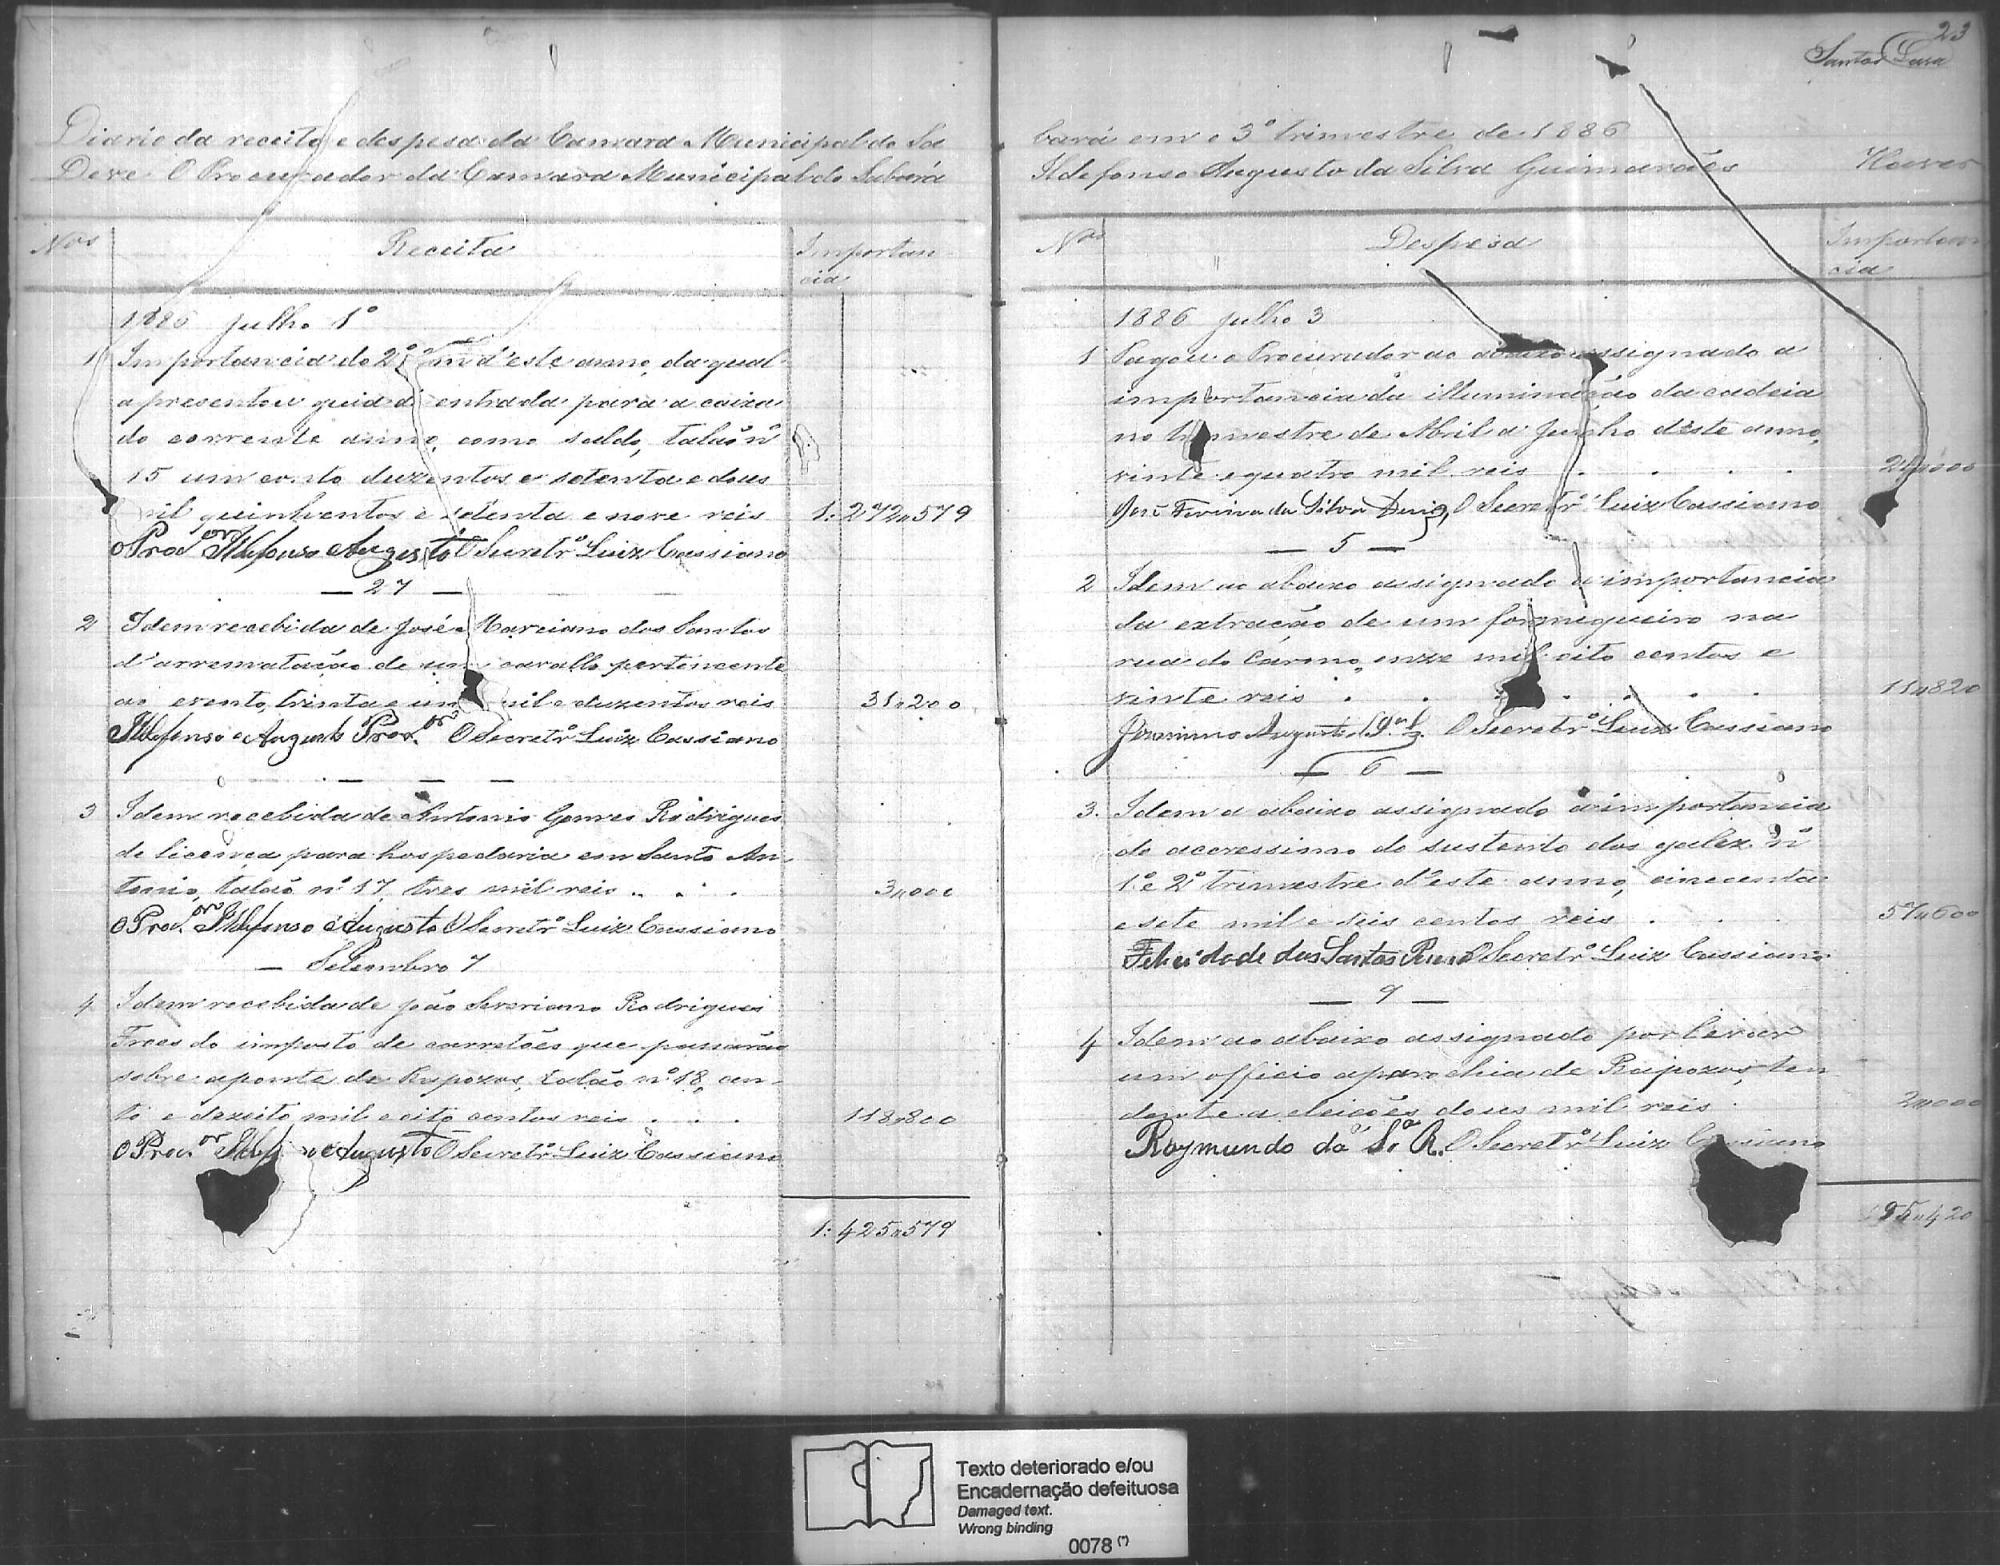 23
Santos Lara
Diario da receita e despesa da Camara Municipal do Sa
Deve O Procurador da Camara Municipal do Sabará
Nos Receita Importan-
cia
1886 Julho 1º
1 Importancia do 2º d'este anno, da qual
apresentou guia de entrada para a caixa
do corrente anno, como saldo, talão nº
15 um conto duzentos e setenta e dous
mil quinhentos e setenta e nove reis 1:272"579
O Prod.or Ildefonso Augusto O Secretrº Luiz Cassiano
— 27 —
2 Idem recebida de José Marciano dos Santos
d'arrematação de um cavallo pertencente
ao evento, trinta e um mil e duzentos reis 31"200
Ildefonso Augusto Prod.or O Secretrº Luiz Cassiano
— — —
3 Idem recebida de Antonio Gomes Rodrigues
de licença para hospedaria em Santo An-
tonio, talão nº 17, tres mil reis . . . 3"000
O Prod.or Ildefonso Augusto O Secretrº Luiz Cassiano
— Setembro 7
4 Idem recebida de João Severiano Rodrigues
Froes do imposto de carretões que passarão
sobre a ponte de Rapozos, talão nº 18, cen-
to e dezoito mil e oito centos reis . . . 118"800
O Prod.or Augusto O Secretrº Luiz Cassiano
1:425"579
bará em o 3º trimestre de 1886
Ildefonso Augusto da Silva Guimarães Haver
Nos Despesa Importan
cia
1886 Julho 3
1 Pagou o Procurador ao abaixo assignado a
importancia da illuminação da cadeia
no trimestre de Abril a Junho d'este anno,
vinte e quatro mil reis . . . . 24"000
José Ferreira da Silva Diniz, O Secretrº Luiz Cassiano
— 5 —
2 Idem ao abaixo assignado a importancia
da extração de um formigueiro na
rua do Carmo, onze mil oito centos e
vinte reis . . . . . . 11"820
Augusto O Secretrº Luiz Cassiano
— 6 —
3. Idem a abaixo assignado a importancia
do accressimo do sustento dos galez. nº
1º e 2º trimestre d'este anno, cincoenta
e sete mil e seis centos reis . . . 57"600
Felicidade dos Santos O Secretrº Luiz Cassiano
— 9 —
4 Idem ao abaixo assignado por levar
um officio a parochia de Rapozos, ten
dente a eleições dous mil reis . 2"000
Raymundo da Sª R. O Secretrº Luiz Cassiano
95"420
Texto deteriorado e/ou
Encadernação defeituosa
Damaged text.
Wrong binding
0078 (*)